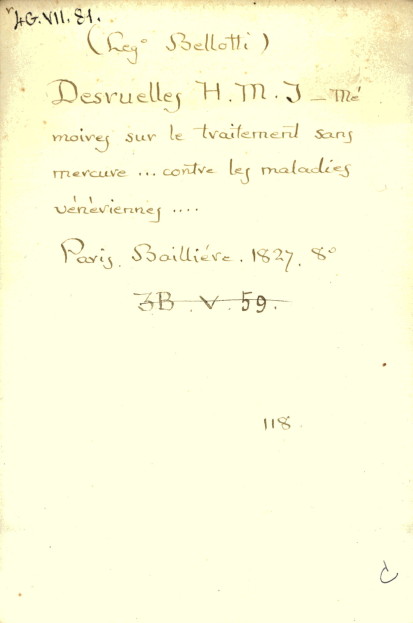 4G.VII.81.
(Leg° Bellotti)
Desruelles H.M.J – Mé
moires sur le traitement sans
mercure ... contre les maladies
vénèriennes ....
Paris. Bailliére. 1827. 8°
3B. V. 59.
118